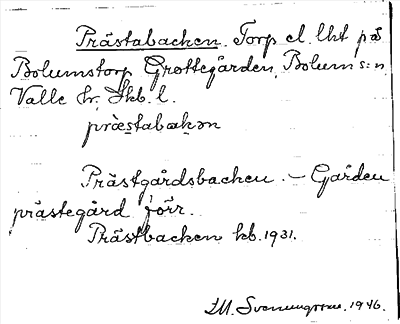 Prästabacken. Torp el. lht på
Bolumstorp Grottegården, Bolums:n
Valle hr. Skb. l.
præstabakən
Prästgårdsbacken. – Gården
prästegård förr.
Prästbacken kb. 1931.
1946.